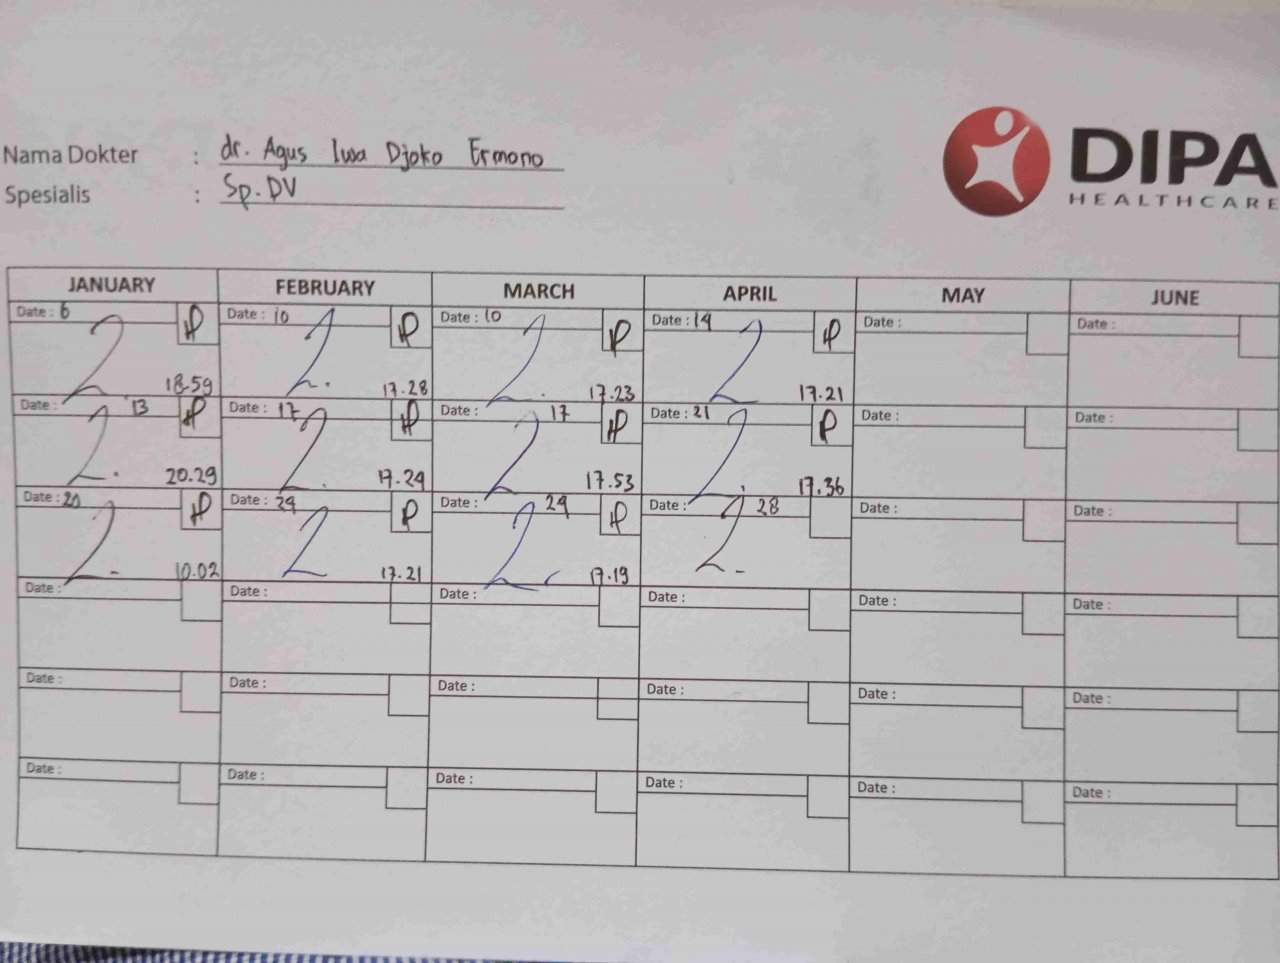 DIPA
HEALTHCARE
Nama Dokter : dr. Agus Iwa Djoko Ermono
Spesialis : Sp.DV
JANUARY FEBRUARY MARCH APRIL MAY JUNE
Date : 6 Date : 10 Date : 10 Date : 14 Date : Date :
18.59 17.28 17.23 17.21
Date : 13 Date : 17 Date : 17 Date : 21 Date : Date :
20.29 17.24 17.53 17.36
Date : 20 Date : 24 Date : 24 Date : 28 Date : Date :
10.02 17.21 17.19
Date : Date : Date : Date : Date : Date :
Date : Date : Date : Date : Date : Date :
Date : Date : Date : Date : Date : Date :